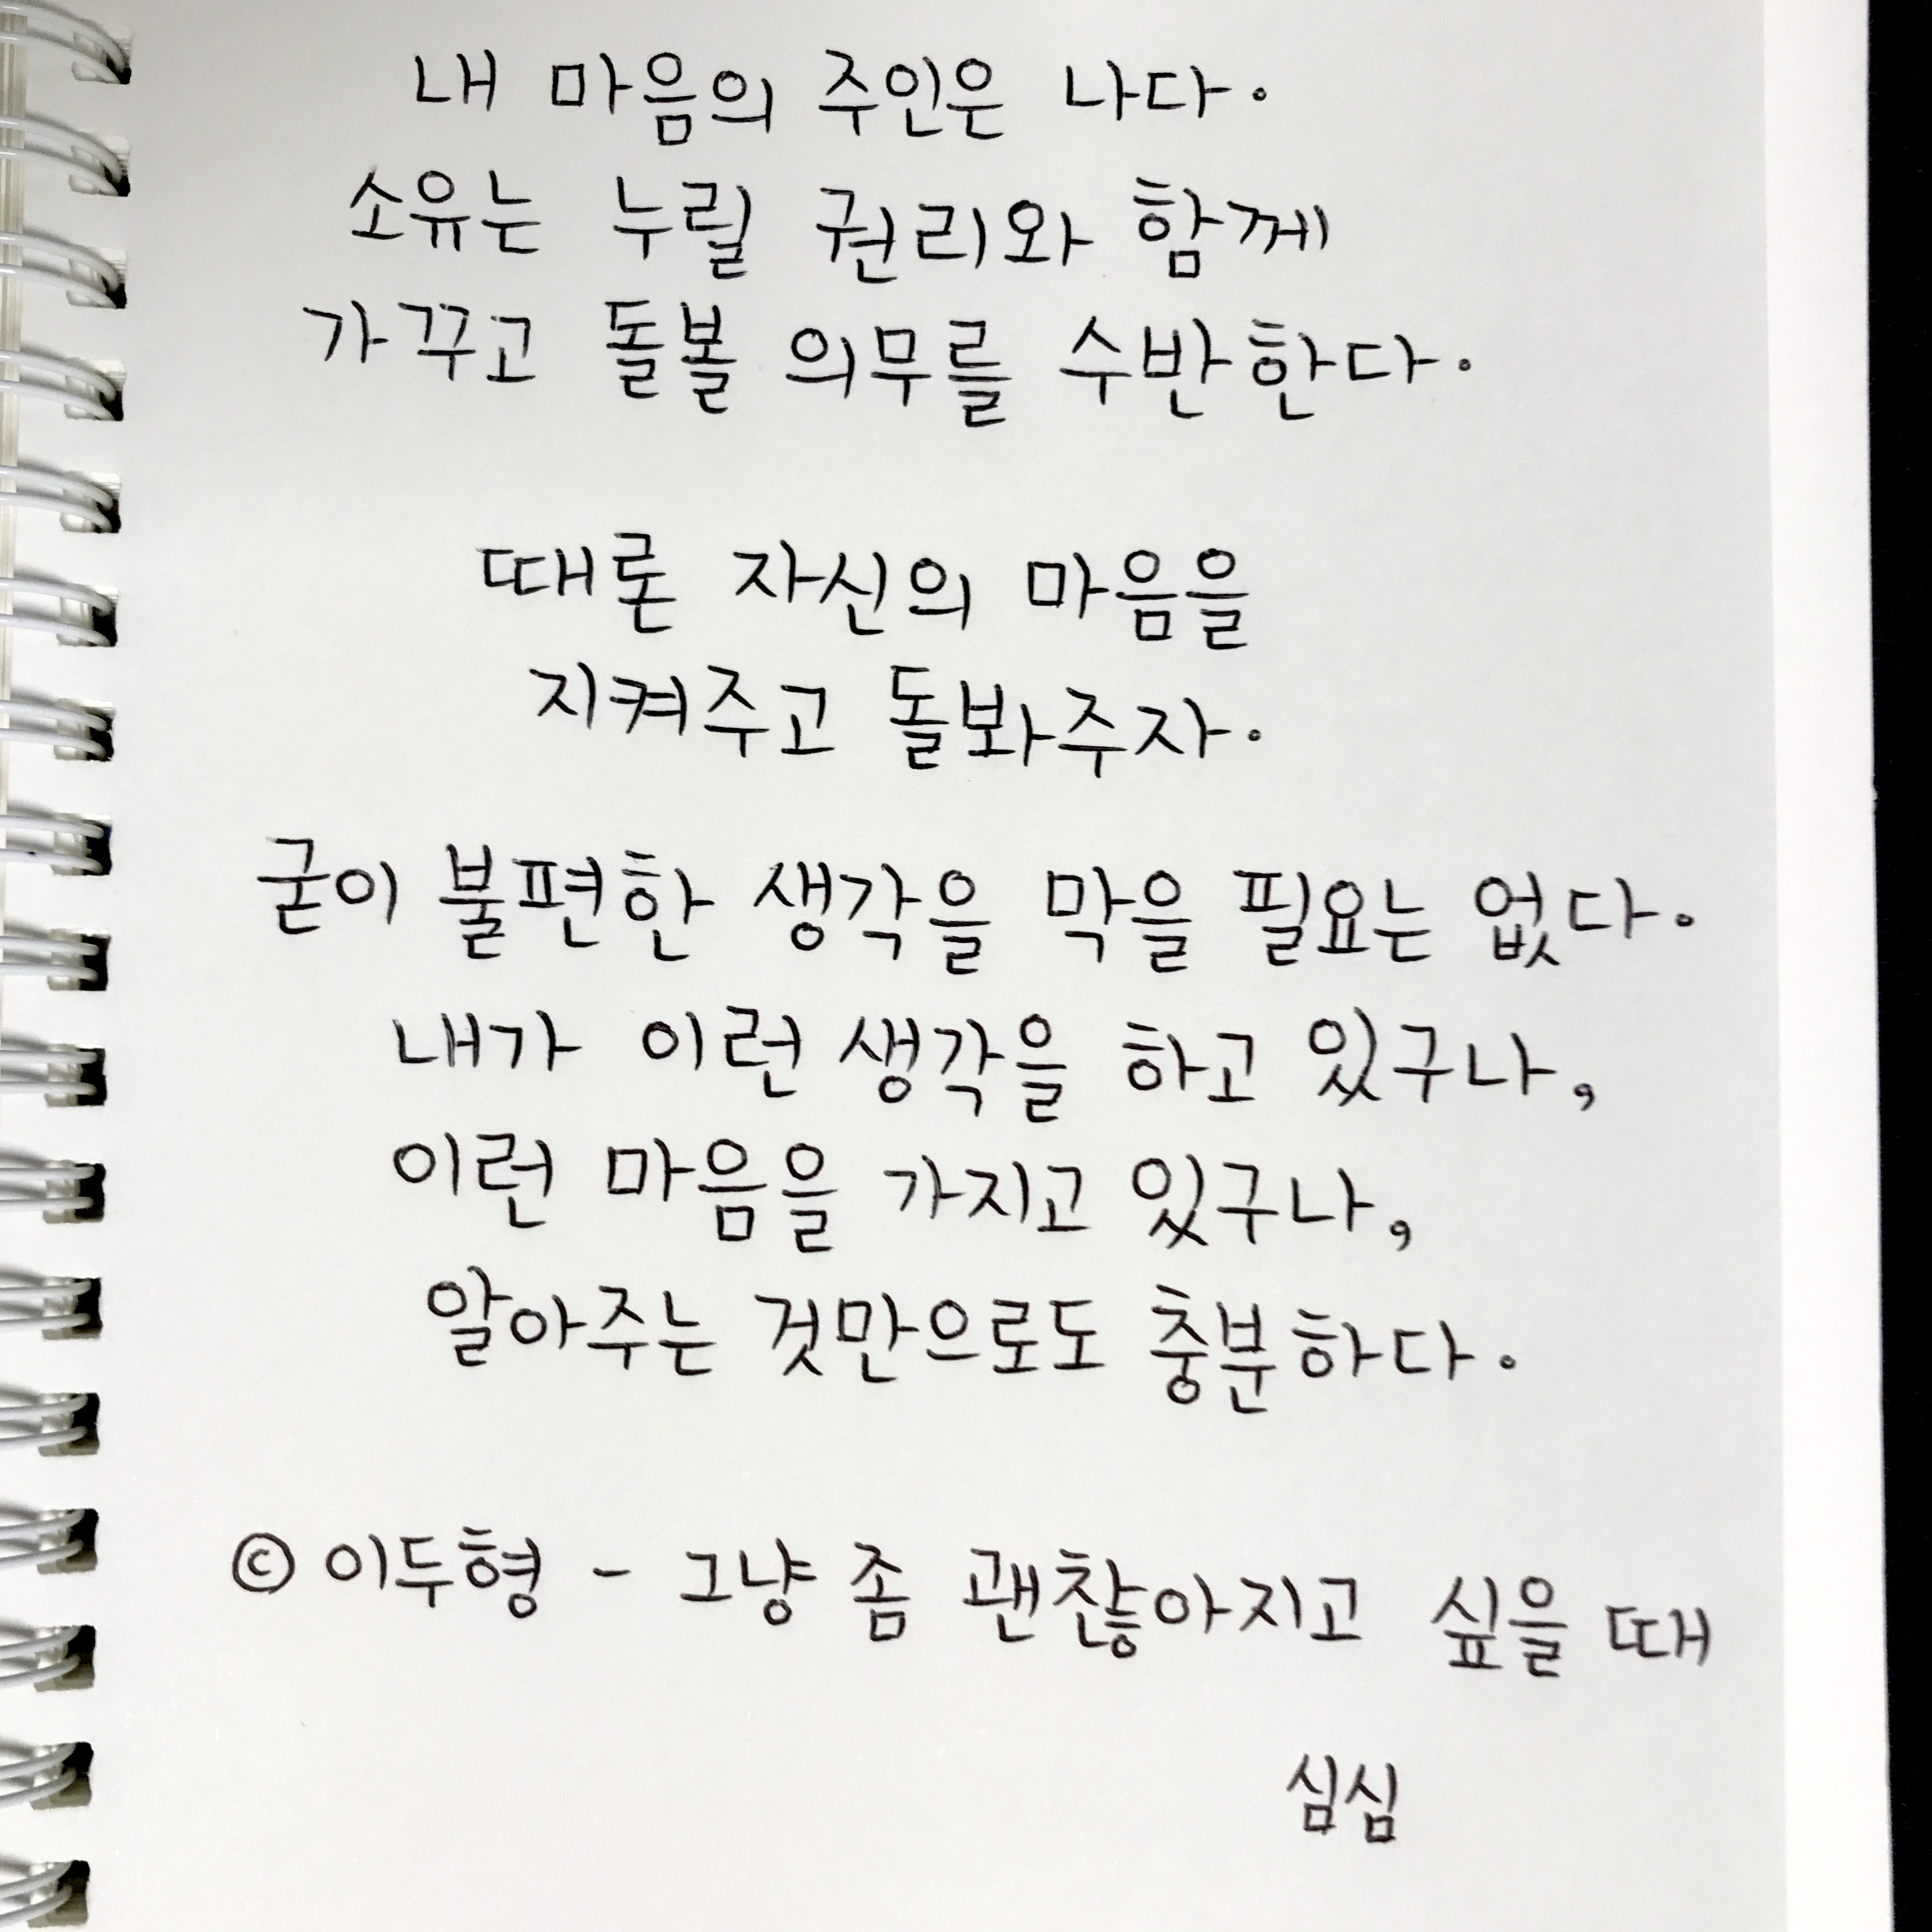 내 마음의 주인은 나다.
소유는 누릴 권리와 함께
가꾸고 돌볼 의무를 수반한다.
때론 자신의 마음을
지켜주고 돌봐주자.
굳이 불편한 생각을 막을 필요는 없다.
내가 이런 생각을 하고 있구나,
이런 마음을 가지고 있구나,
알아주는 것만으로도 충분하다.
© 이두형 - 그냥 좀 괜찮아지고 싶을 때
심심